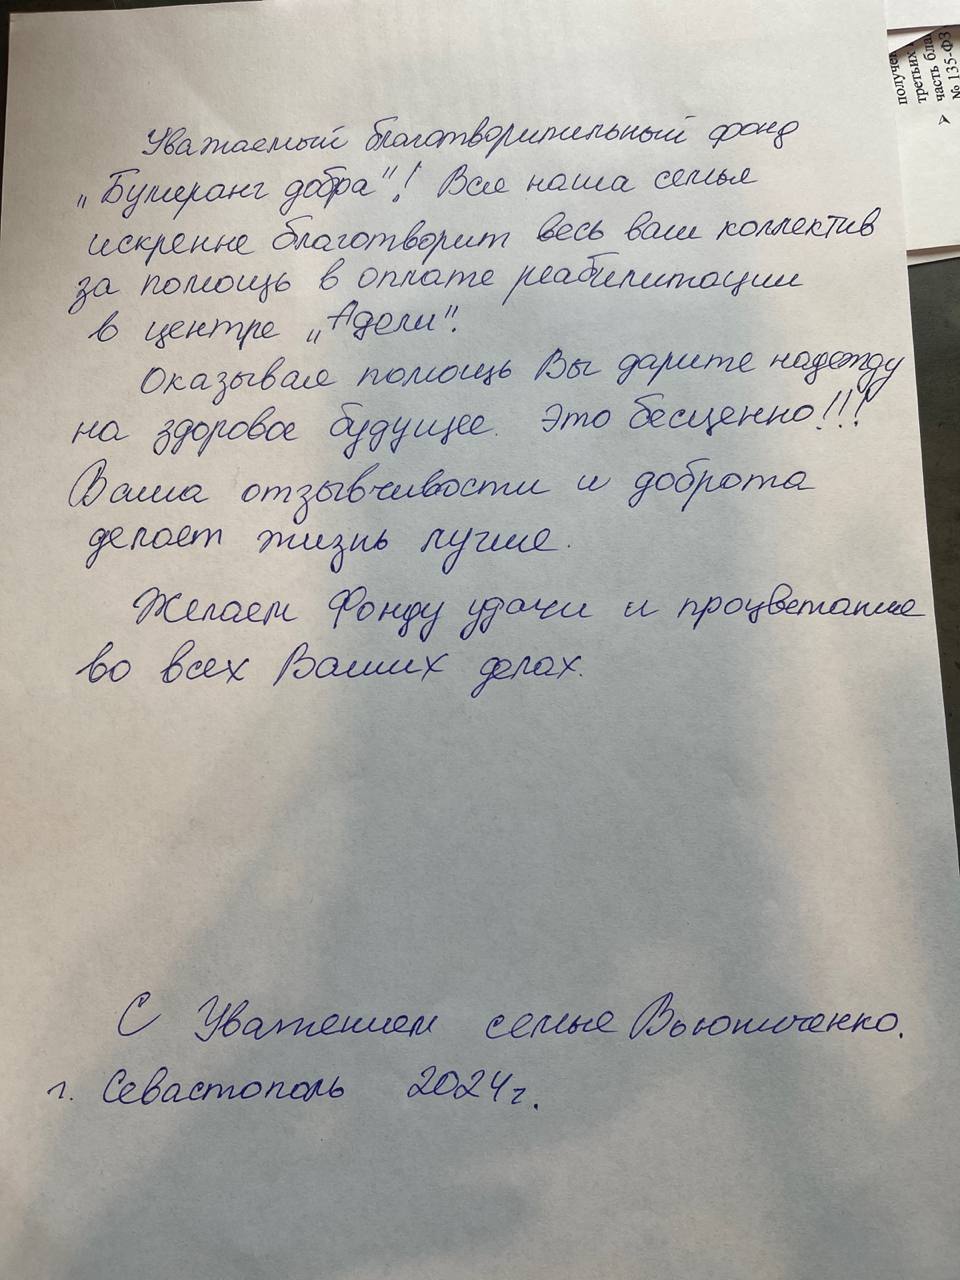 Уважаемый благотворительный фонд
„Бумеранг добра"! Вся наша семья
искренне благотворит весь ваш коллектив
за помощь в оплате реабилитации
в центре „Адели".
Оказывая помощь Вы дарите надежду
на здоровое будущее. Это бесценно!!!
Ваша отзывчивости и доброта
делает жизнь лучше.
Желаем Фонду удачи и процветание
во всех Ваших делах.
С Уважением семья Вьютченко.
г. Севастополь 2024г.
получе
третьих
часть бла
№ 135-ФЗ